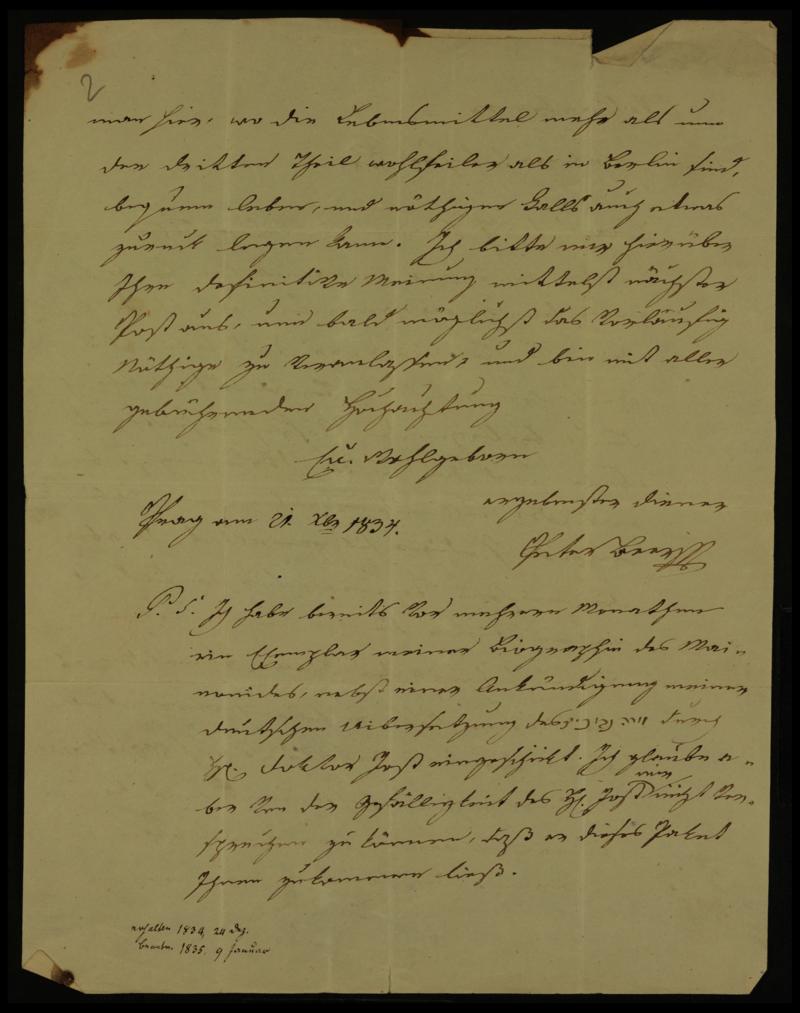 2
man hier, wo die Lebensmittel mehr als um
den dritten Theil wohlfeiler als in Berlin sind,
bequem leben, und nöthigen Falls auch etwas
zurück legen kann. Ich bitte mir hierüber
Ihre definitive Meinung mittelst nächster
Post aus, um bald möglichst das Vorläufig
Nöthige zu veranlassen, und bin mit aller
gebührenden Hochachtung
Eu. Wohlgeborn
ergebenster Diener
Prag am 21. Xbr 1834.
Peter Beer
P. S. Ich habe bereits vor mehrern Monathen
ein Exemplar meiner Biographie des Mai-
monides, nebst einer Ankündigung meiner
deutschen Uibersetzung des durch
H. Doktor Jost eingeschickt. Ich glaube a-
ber von der Gefälligkeit des H. Jost mir nicht ver-
sprechen zu können, daß er dieses Paket
Ihnen zukommen ließ.
erhalten 1834, 24 Dez.
beantw. 1835. 9 Januar